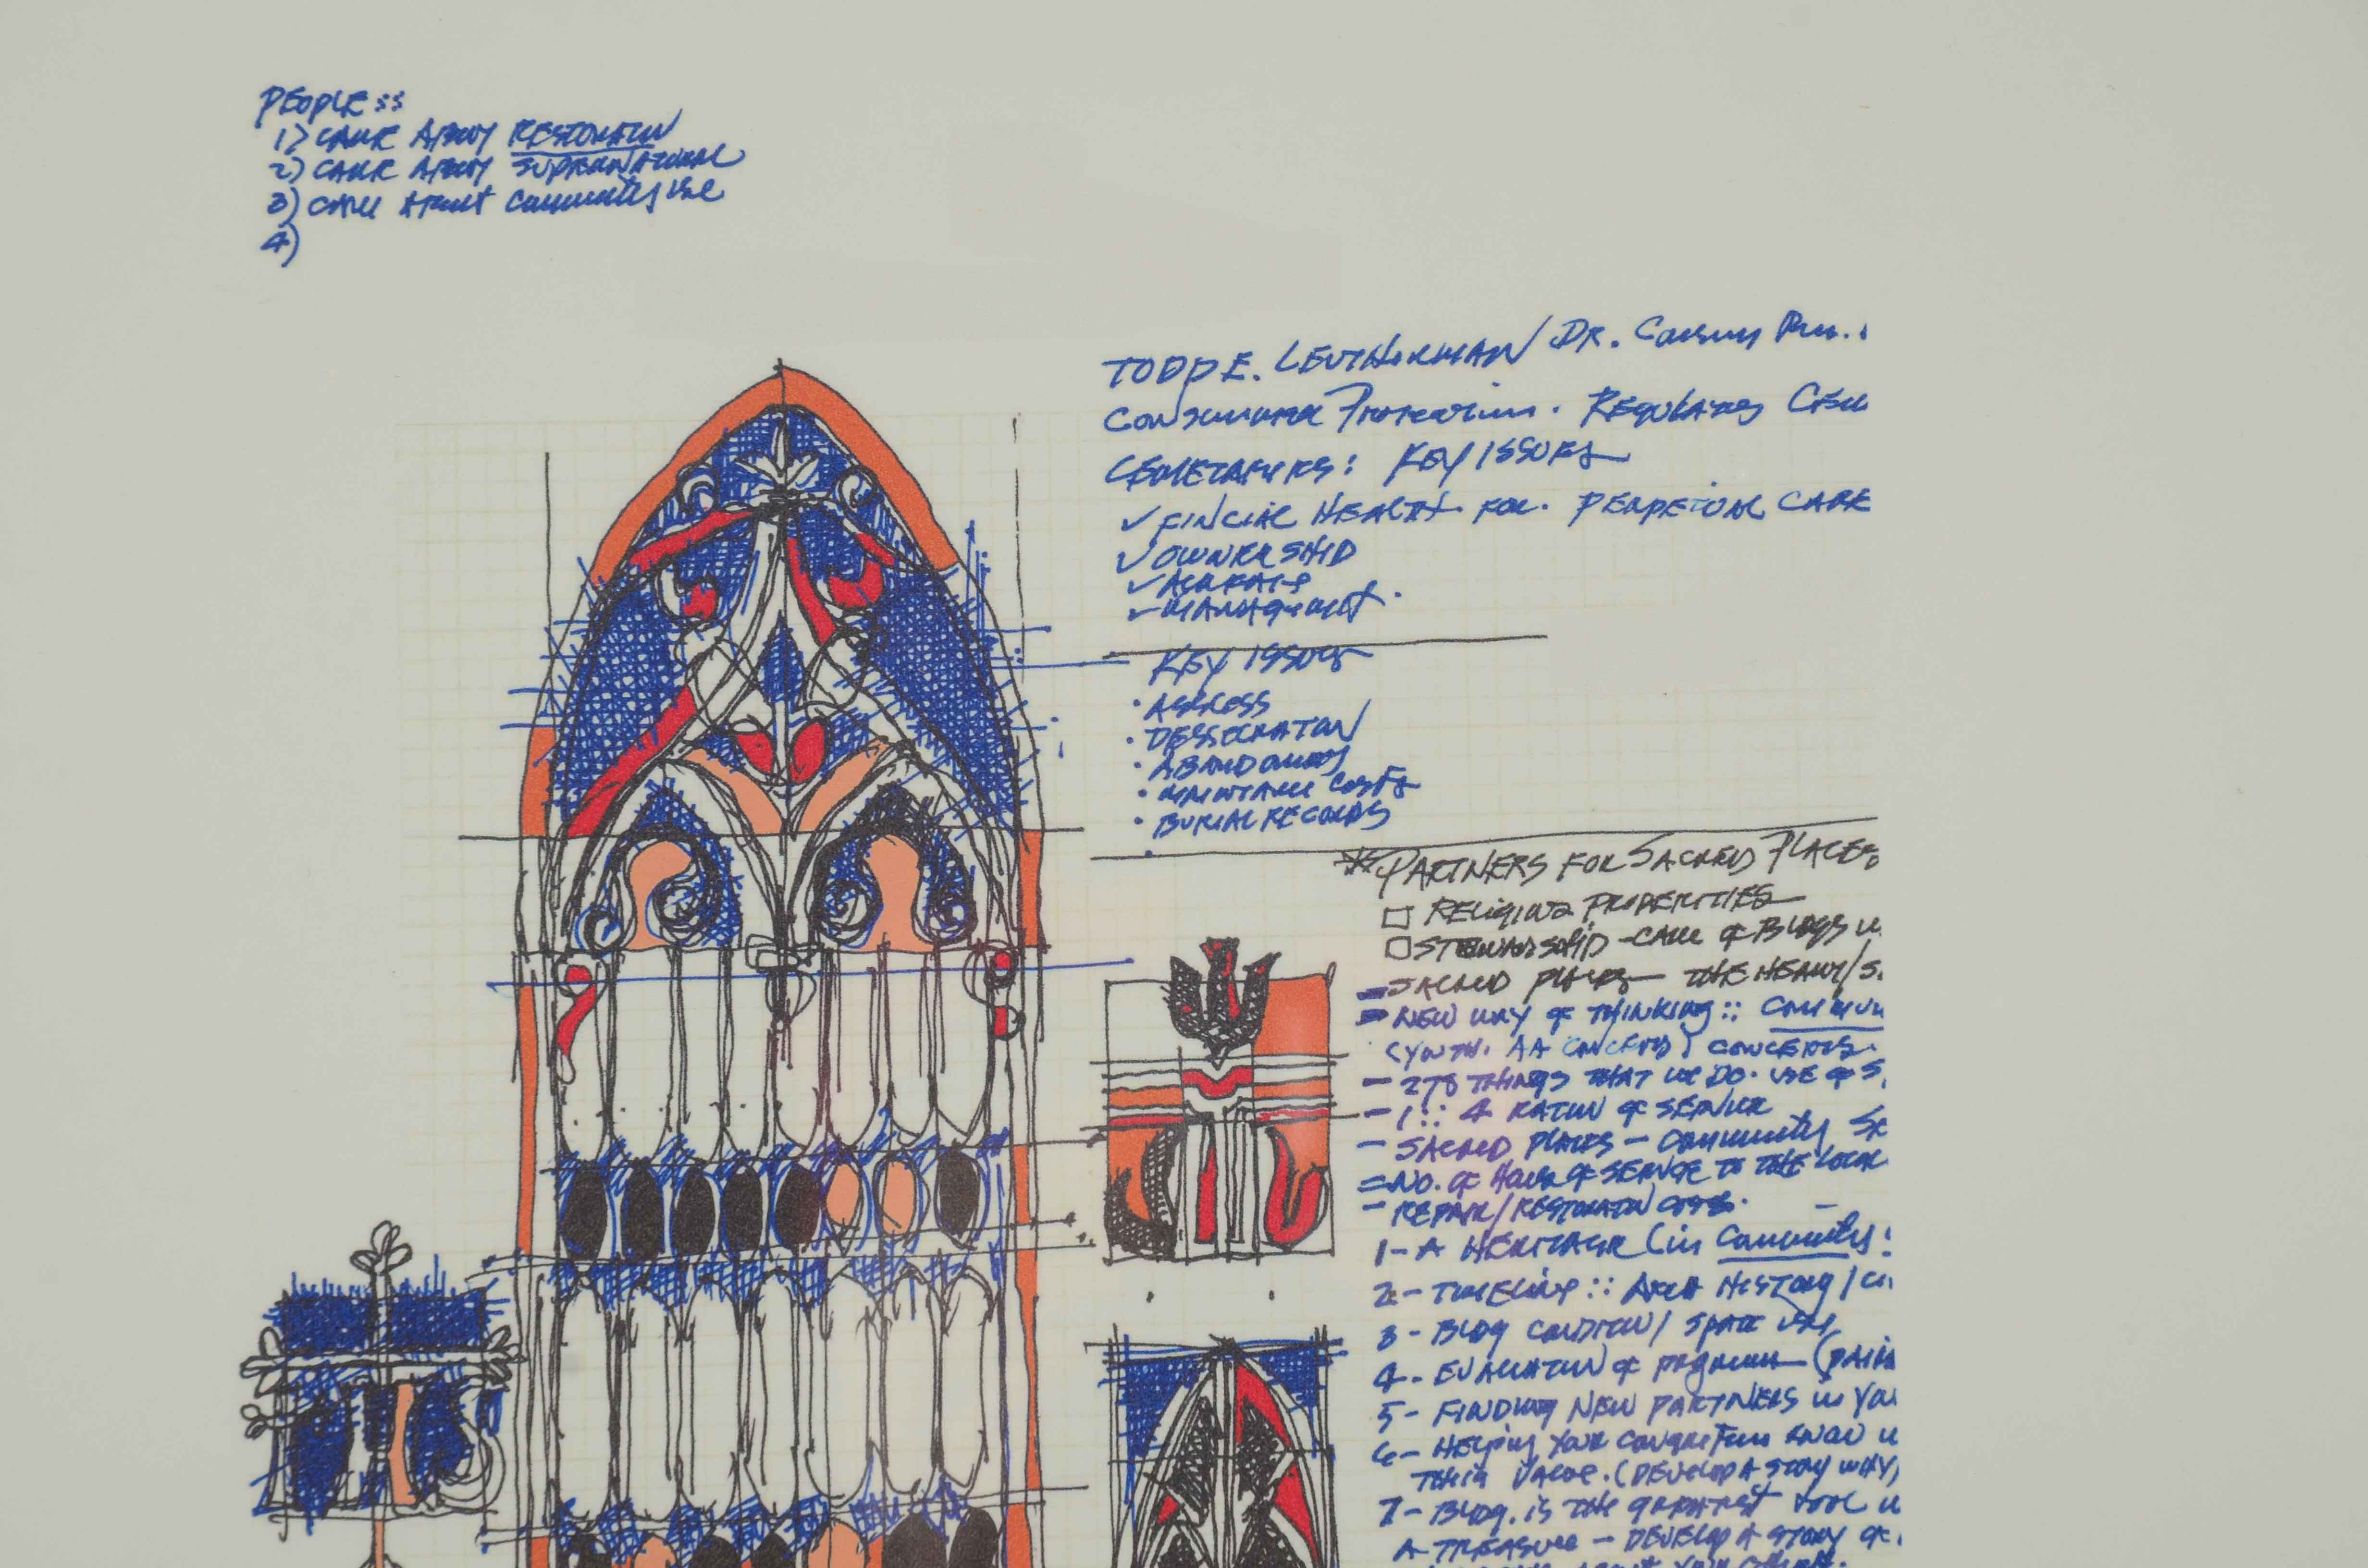 PEOPLE ::
1) CARE ABOUT RESTORATION
2) CARE ABOUT SUPERNATURAL
3) CARE ABOUT Community Use
4)
TODD E. LEUTHERMAN / DR.
CONSUMER PROTECTION. REGULATES
CEMETARIES: KEY ISSUES
✓ FINCIAL HEALTH FOR. PERPETUAL CARE
✓ OWNERSHIP
✓
✓ MANAGEMENT.
KEY ISSUES
• ACCESS
• DESSECRATION
• ABANDONED
• MAINTANCE COSTS
• BURIAL RECORDS
* PARTNERS FOR SACRED PLACES
□ RELIGIOUS PROPERTIES
□ STEWARDSHIP - CARE of BLDGS
- SACRED PLACES - THE HEAVY/S
- NEW WAY of THINKING :: COMMUN
(YOUTH. AA CONCERNS) CONCERNS.
- 278 THINGS THAT WE DO. USE of S
- 1 :: 4 RATIO of SERVICE
- SACRED PLACES - Community SE
= NO. of HOURS of SERVICE TO THE LOCAL
- REPAIR/RESTORATION COSTS.
1- A HERITAGE (in Community:
2- TIMELINE :: ARCH HISTORY / CI
3- BLDG CONDITION / SPACE USE,
4- EVALUATION of PROGRAM -
5- FINDING NEW PARTNERS in YOU
6- HELPING YOUR CONGREGATIONS KNOW
THEIR VALUE. (DEVELOP A STORY WHY)
7- BLDG. IS THE GREATEST TOOL
A TREASURE - DEVELOP A STORY OF
ABOUT YOUR